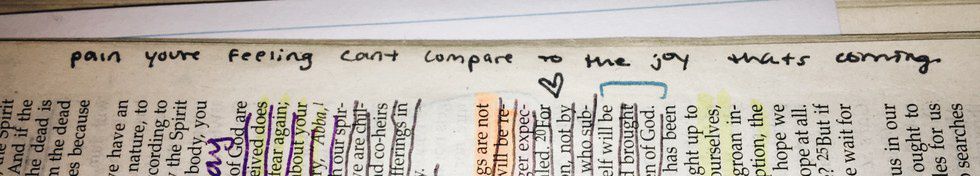 pain youre feeling cant compare to the joy thats coming.
the Spirit
And if the
he dead is
m the dead
es because
e have an
nature, to
cording to
the Spirit
body, you
of God are
eived does
fear again;
about your
ry, "Abba,
n our spir-
e are chil-
d co-heirs
fferings in
gs are not
will be re-
ger expec-
led. 20 For
on, not by
who sub-
elf will be
d brought
en of God.
has been
ght up to
ourselves,
groan in-
ption, the
hope we
ope at all.
? 25 But if
e wait for
us in our
ought to
les for us
searches